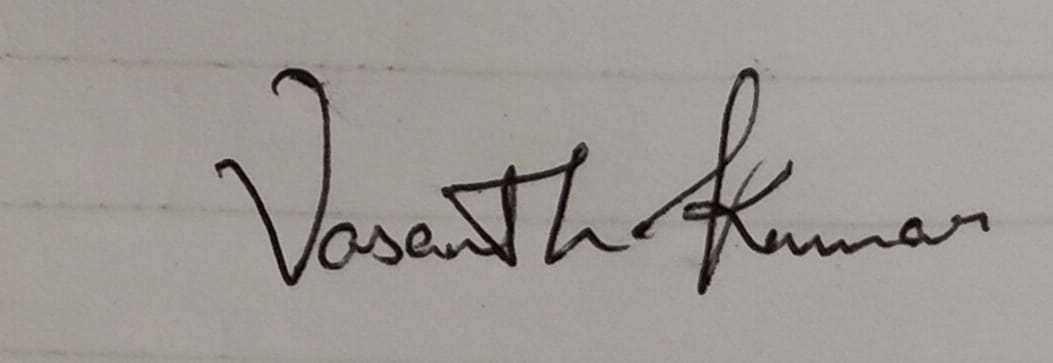 Vasanth Kumar